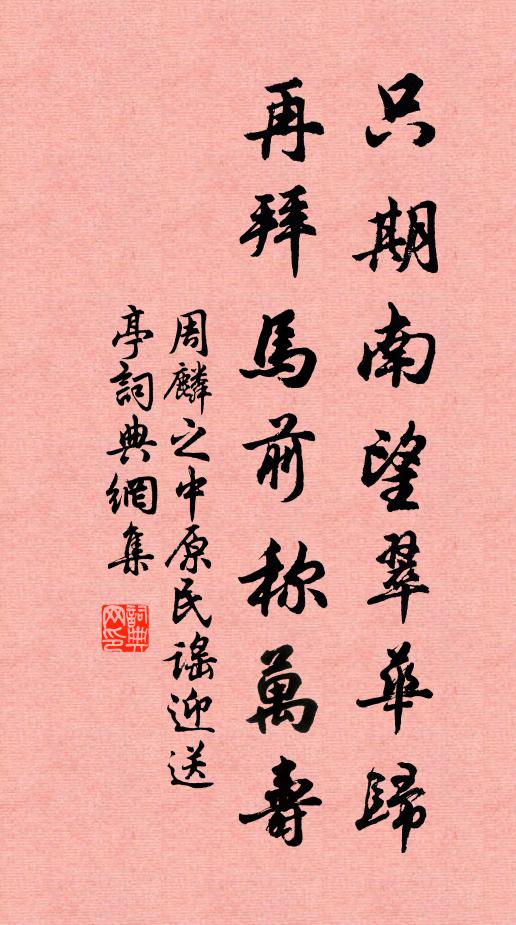 只期南望翠華歸
再拜馬前称萬壽
周麟之中原民謠迎送
亭詞典網集
詞典
网印